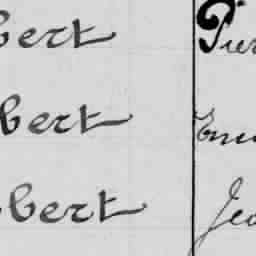 bert Pier
bert Em
bert Jea